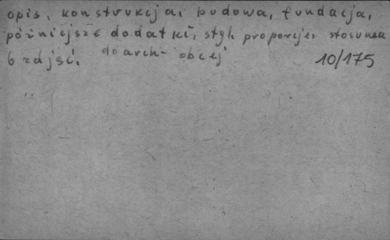 opis, konstrukcja, budowa, fundacja,
późniejsze dodatki, styl, proporcje, stosunek
do arch. obcej
6 zdjęć. 10/175